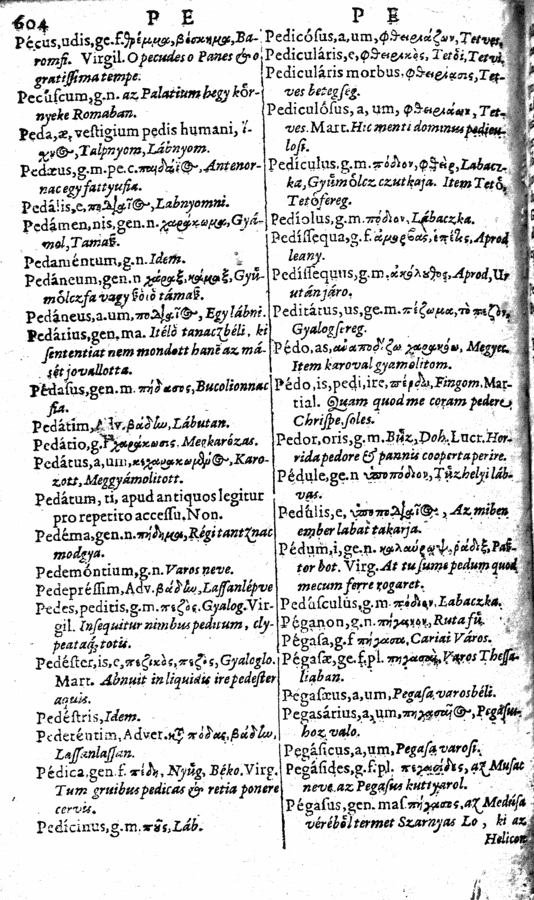 604 P E P E
Pécus,udis,ge.f.θρέμμα,βόσκημα,Ba-
romfi. Virgil. O pecudes o Panes & o
gratissima tempe.
Pecúscum,g.n. az Palatium hegy kőr-
nyeke Romaban.
Peda,æ, vestigium pedis humani,
Talpnyom, Lábnyom.
Pedæus,g.m.pe.c. Antenor-
nac egy fattyufia.
Pedális,e, Labnyomni.
Pedámen,nis,gen.n. χαράκωμα, Gyá-
mol, Tamaſʒ.
Pedaméntum,g.n. Idem.
Pedáneum,gen.n χάραξ,κάμαξ, Gyü-
mőlczfa vagy támaſʒ.
Pedáneus,a.um, Egy lábni.
Pedárius,gen.ma. Itélő tanaczbéli, ki
sententiat nem mondott hanē az má-
sét jovallotta.
Pédasus,gen.m. πήδασος, Bucolionnac
fia.
Pedátim, Adv. Lábutan.
Pedátio,g.f. χαράκωσις. Megkarózas.
Pedátus,a,um, Karo-
zott, Meggyámolitott.
Pedátum, ti, apud antiquos legitur
pro repetito accessu, Non.
Pedéma,gen.n. πήδημα, Régi tantznac
modgya.
Pedemóntium,g.n. Varos neve.
Pedepréssim, Adv. Lassanlépve
Pedes, peditis, g.m. πεζός. Gyalog. Vir-
gil. Insequitur nimbus peditum, cly-
peataq́; totis.
Pedéster,is,e, πεζικὸς, πεζὸς, Gyaloglo.
Mart. Abnuit in liquidis ire pedester
aquis.
Pedéstris, Idem.
Pedeténtim, Adver. πόδας
Lassanlassan.
Pédica,gen.f. πέδη, Nyüg, Béko. Virg.
Tum gruibus pedicas & retia ponere
cervis.
Pedícinus,g.m. πȣ̃ς, Láb.
Pedicósus,a,um, Tetves.
Pediculáris,e, φθειρικὸς, Tetői, Tetvi.
Pediculáris morbus, φθειρίασις, Tet-
ves betegseg.
Pediculósus,a, um, Tet-
ves. Mart. Hic menti dominus pedicu-
losi.
Pedículus,g.m. πόδιον, φθεὶρ, Labacz-
ka, Gyümőlcz czutkaja. Item Tetü,
Tetüfereg.
Pedíolus,g.m. πόδιον, Lábaczka.
Pedíssequa,g.f. Aprod
leany.
Pedíssequus,g.m. ἀκόλουθος, Aprod, Ur
után járo.
Peditátus,us,ge.m. πέζωμα, τὸ πεζὸν,
Gyalog sereg.
Pédo,as, Megyek.
Item karoval gyamolitom.
Pédo,is,pedi,ire, πέρδω, Fingom. Mar-
tial. Quam quod me coram pedere,
Chrispe, soles.
Pedor,oris,g.m. Büz, Doh. Lucr. Hor-
rida pedore & pannis cooperta perire.
Pédule,ge.n ὑποπόδιον, Tüzhelyi láb-
vas.
Pedúlis,e, Az miben
ember labat takarja.
Pédum,i,ge.n. καλαύροψ, ῥάβδος, Paſʒ-
tor bot. Virg. At tu sume pedum quod
mecum ferre rogaret.
Pedúsculus,g.m. πόδιον. Labaczka.
Péganon,g.n. πήγανον, Ruta fü.
Pégasa,g.f πήγασα, Cariai Város.
Pégasæ,ge.f.pl. πηγασαὶ, Varos Thessa-
liaban.
Pegasæus,a,um, Pegasa varosbéli.
Pegasárius,a,um, Pegasus-
hoz valo.
Pegásicus,a,um, Pegasa varosi.
Pegásides,g.f.pl. πηγασίδες, aʒ Musac
neve az Pegasus kuttyarol.
Pégasus,gen.mas. πήγασος, aʒ Medusa
véréből termet Szarnyas Lo, ki az
Helicon